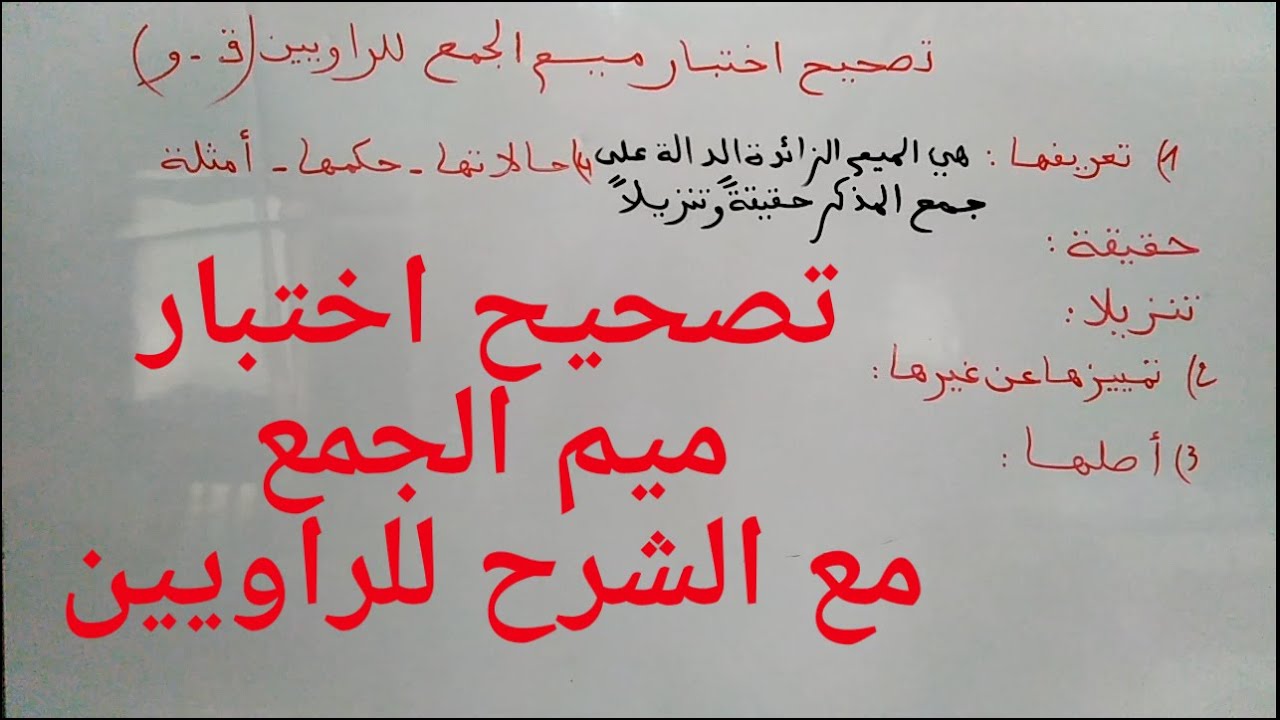 تصحيح اختبار ميم الجمع للراويين (ق - و)
1) تعريفها : هي الميم الزائدة الدالة على
جمع المذكر حقيقةً وتنزيلاً
4) حالاتها - حكمها - أمثلة
حقيقة :
تنزيلا :
2) تمييزها عن غيرها :
3) أصلها :
تصحيح اختبار
ميم الجمع
مع الشرح للراويين